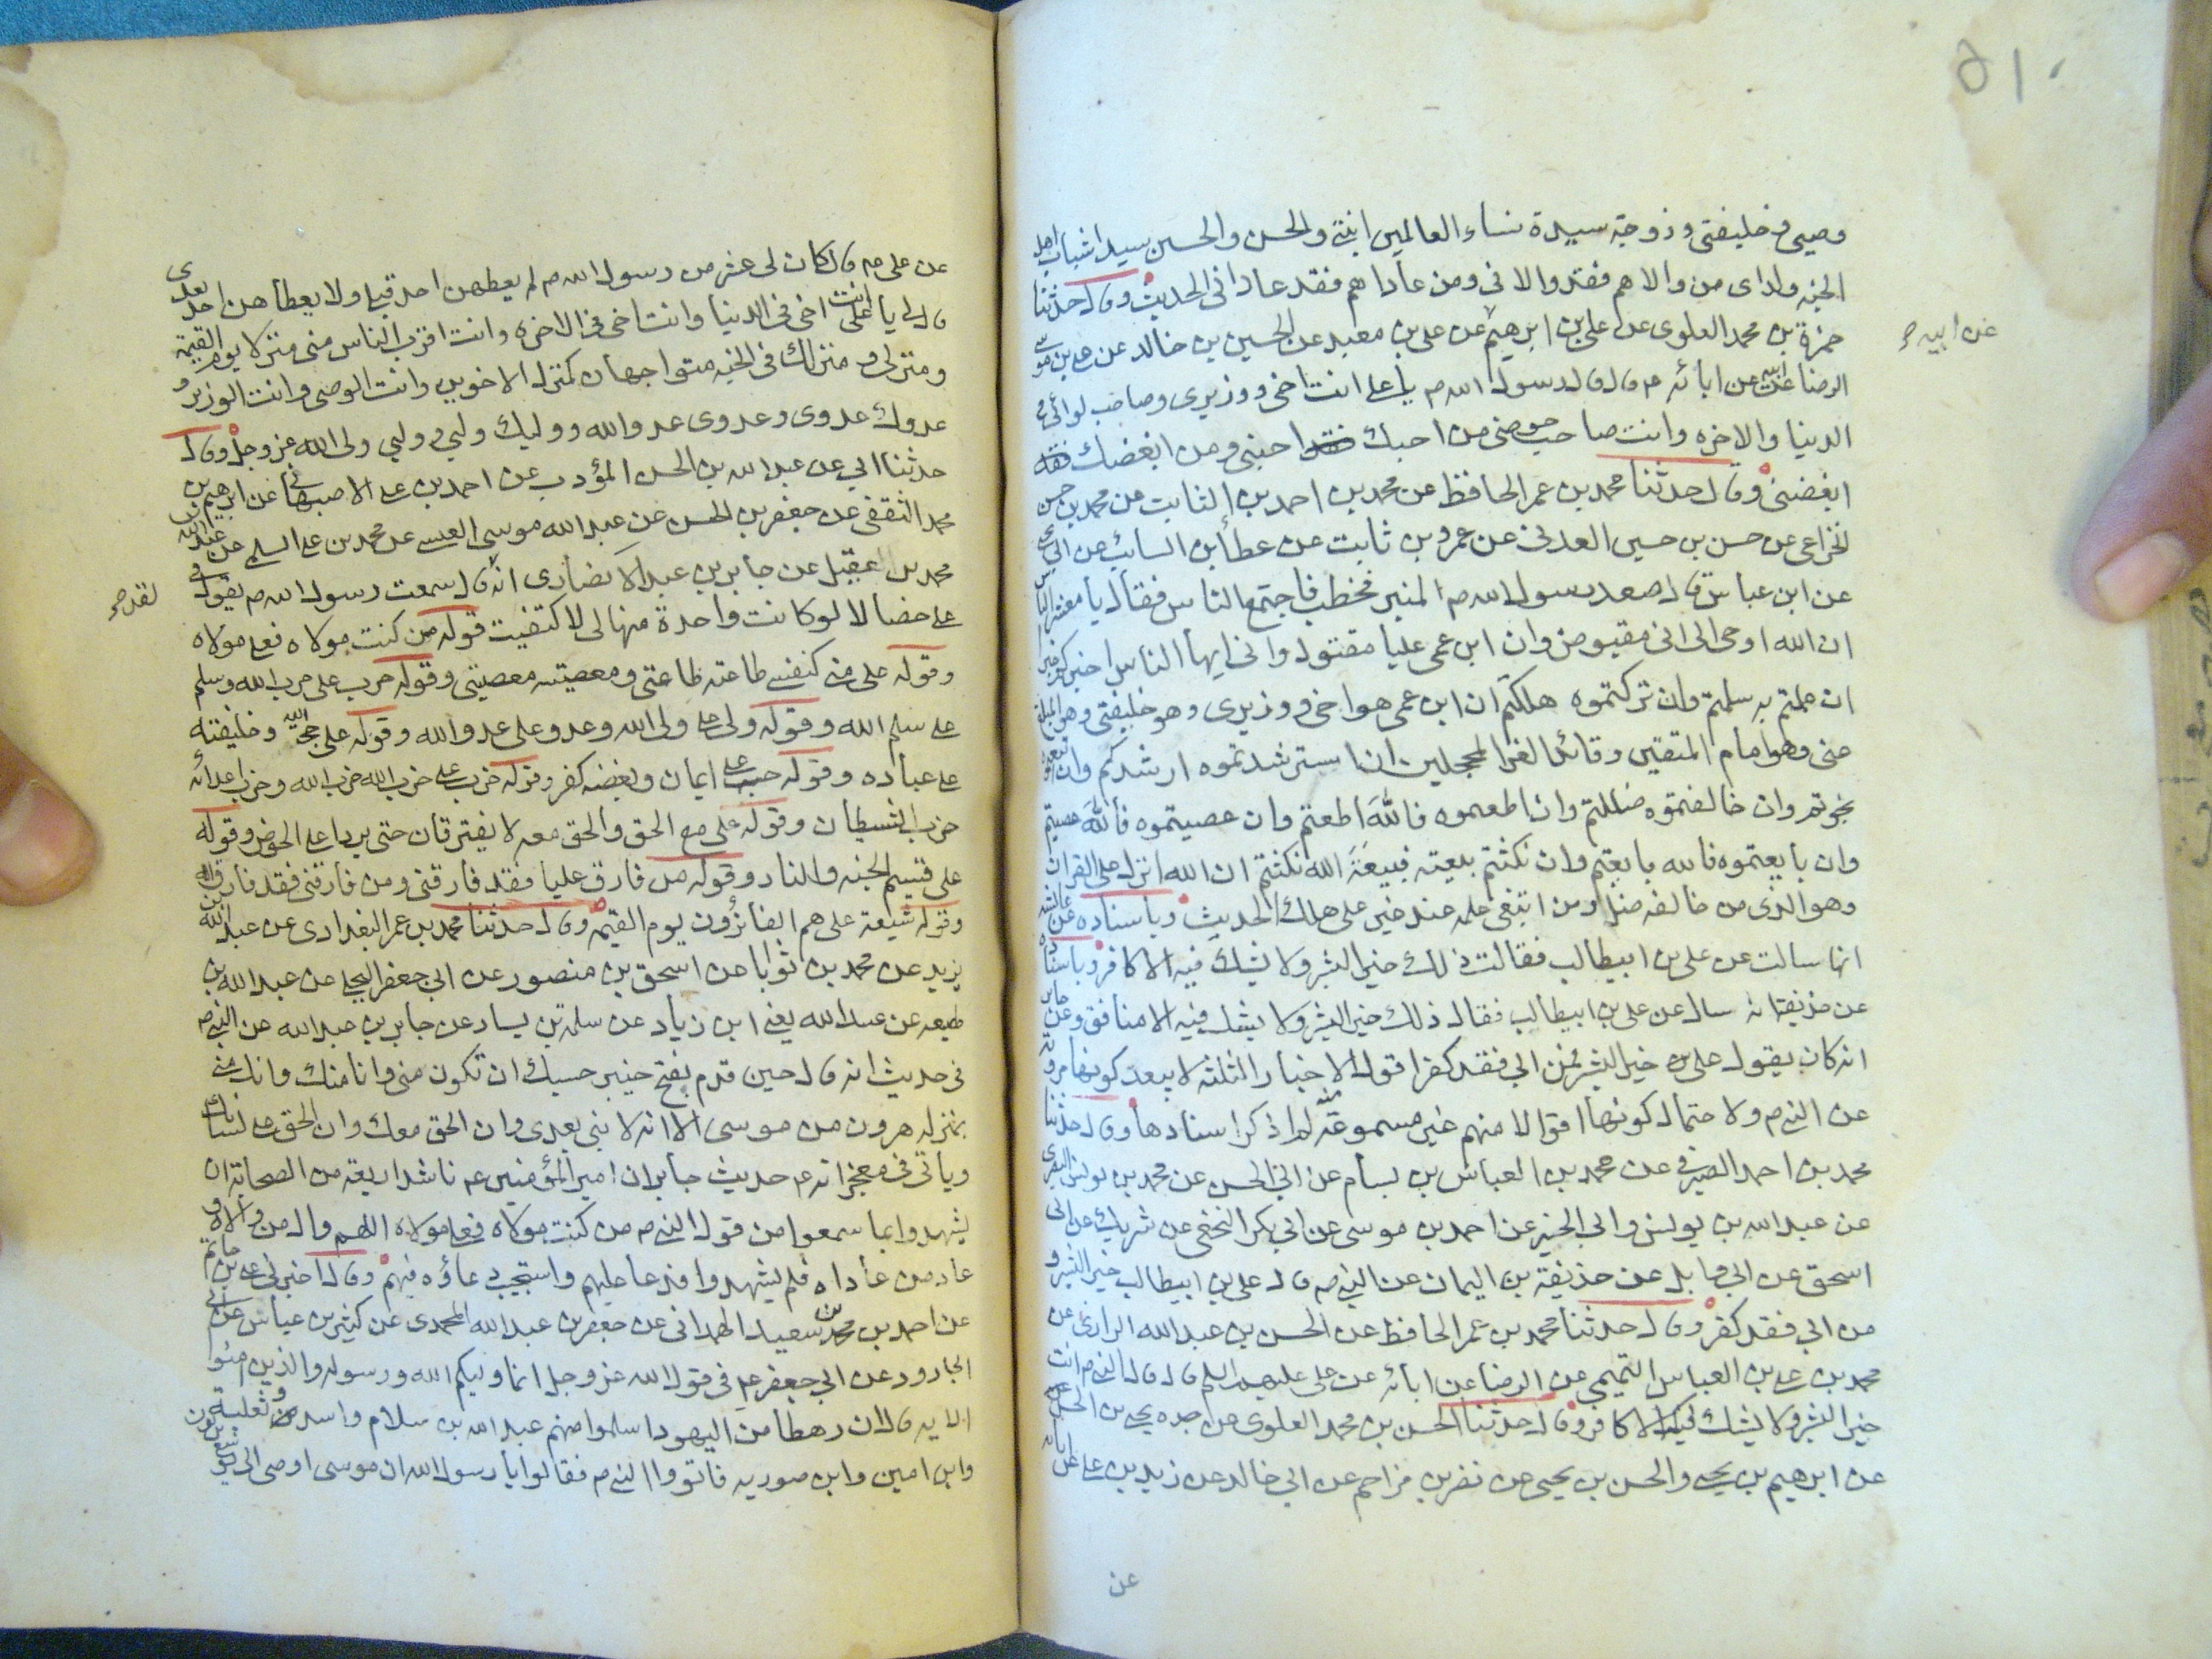 ٥١٠
وصيى و خليفتى و زوجته سيدة نساء العالمين ابنتى والحسن والحسين سيدا شباب اهل
الجنه ولداى من والاهم فقد والانى ومن عاداهم فقد عادانى الحديث وقال حدثنا
حمزة بن محمد العلوى عن على بن ابرهيم عن على بن معبد عن الحسين بن خالد عن على بن موسى
عن ابيه
الرضا عن ابيه عن ابائه ع قال قال رسول الله ص يا على انت اخى و وزيرى وصاحب لوائى فى
الدنيا والاخره وانت صاحب حوضى من احبك احبنى ومن ابغضك فقد
ابغضنى وقال حدثنا محمد بن عمر الحافظ عن محمد بن احمد بن الثابت من محمد بن حسن
الخزاعى عن حسن بن حسين العدنى عن عمرو بن ثابت عن عطأ بن السائب عن ابى يحيى
عن ابن عباس قال صعد رسول الله ص المنبر فخطب فاجتمع الناس فقال يا معشر الناس
ان الله اوحى الى انى مقبوض وان ابن عمى عليا مقتول وانى ايها الناس اخبركم خبرا
ان عملتم به سلمتم وان تركتموه هلكتم ان ابن عمى هو اخى و وزيرى وهو خليفتى وهو المبلغ
عنى وهو امام المتقين وقائد الغر المحجلين ان استرشدتموه ارشدكم وان تبعتموه
نجوتم وان خالفتموه ضللتم وان اطعموه فالله اطعتم وان عصيتموه فالله عصيتم
وان بايعتموه فالله بايعتم وان نكثتم بيعته فبيعة الله نكثتم ان الله انزل على القران
وهو الذى من خالفه ضل ومن ابتغى علمه عند غير على هلك الحديث وباسناده عن عائشه
انها سالت عن على بن ابيطالب فقالت ذلك خير البشر ولا يشك فيه الا كافر وباسناده
عن حذيفة انه سال عن على بن ابيطالب فقال ذلك خير البشر ولا يشك فيه الا منافق وعن جابر
انه كان يقول على خير البشر فمن ابى فقد كفر اقول الاخبار الثلثه لا يبعد كونها مروية
عن النبى ص ولاحتمال كونها اقوالا منهم غير مسموعة منه لم اذكر اسنادها وقال حدثنا
محمد بن احمد الصيرفى عن محمد بن العباس بن بسام عن ابى الحسن عن محمد بن يونس البصرى
عن عبد الله بن يونس وابى الخير عن احمد بن موسى عن ابى بكر النخعى عن شريك عن ابى
اسحق عن ابى وابل عن حذيفة بن اليمان عن النبى ص قال على بن ابيطالب خير البشر و
من ابى فقد كفر وقال حدثنا محمد بن عمر الحافظ عن الحسن بن عبد الله الرازى عن
محمد بن على بن العباس التميمى عن الرضا عن ابائه عن على عليهم السلم قال قال النبى ص انت
خير البشر ولا يشك فيك الا كافر وقال حدثنا الحسن بن محمد العلوى عن جده يحيى بن الحسن
عن ابرهيم بن يحيى والحسن بن يحيى عن نصر بن مزاحم عن ابى خالد عن زيد بن على عن ابائه
عن
عن على ع قال كان لى عشر من رسول الله ص لم يعطهن احد قبلى ولا يعطاهن احد بعدى
قال لى يا على انت اخى فى الدنيا وانت اخى فى الاخره وانت اقرب الناس منى منزلا يوم القيمة
ومنزلى و منزلك فى الجنه متواجهان كمنزل الاخوين وانت الوصى وانت الوزير و
عدوك عدوى وعدوى عدو الله ووليك وليى و وليى ولى الله عز وجل وقال
حدثنا ابى عن عبد الله بن الحسن المؤدب عن احمد بن على الاصبهانى عن ابرهيم بن
محمد الثقفى عن جعفر بن الحسن عن عبد الله موسى العبسى عن محمد بن على السلمى عن عبد الله بن
محمد بن عقيل عن جابر بن عبد الانصارى انه قال سمعت رسول الله ص يقول فى
لقد
على خصالا لو كانت واحدة منها لى لاكتفيت قوله من كنت مولاه فعلى مولاه
وقوله على منى كنفسى طاعته طاعتى ومعصيته معصيتى وقوله حرب على حرب الله وسلم
على سلم الله وقوله ولى على ولى الله وعدو على عدو الله وقوله على حجة الله وخليفته
على عباده وقوله حب على ايمان وبغضه كفر وقوله حزب على حزب الله حزب الله وحزب اعدائه
حزب الشيطان وقوله على مع الحق والحق معه لا يفترقان حتى يردا على الحوض وقوله
على قسيم الجنه والنار وقوله من فارق عليا فقد فارقنى ومن فارقنى فقد فارق الله
وقوله شيعة على هم الفائزون يوم القيمة وقال حدثنا محمد بن عمر البغدادى عن عبد الله بن
يزيد عن محمد بن ثوابا عن اسحق بن منصور عن ابى جعفر البجلى عن عبد الله بن
طيعه عن عبد الله يعنى ابن زياد عن سلمة بن يسار عن جابر بن عبد الله عن النبى ص
فى حديث انه قال حين قدم بفتح خيبر حسبك ان تكون منى وانا منك وانك منى
بمنزله هرون من موسى الا انه لا نبى بعدى وان الحق معك وان الحق على لسانك
وياتى فى معجزاته ع حديث جابر ان امير المؤمنين ع ناشد اربعة من الصحابة ان
يشهدوا بما سمعوا من قول النبى ص من كنت مولاه فعلى مولاه اللهم وال من والاه و
عاد من عاداه فلم يشهدوا فدعا عليهم واستجيب دعاؤه فيهم وقال اخبرنى على بن حاتم
عن احمد بن محمد بن سعيد الهمدانى عن جعفر بن عبد الله المحمدى عن كثير بن عياش عن ابى
الجارود عن ابى جعفر ع فى قول الله عز وجل انما وليكم الله ورسوله والذين امنوا
الايه قال ان رهطا من اليهود اسلموا منهم عبد الله بن سلام واسد وثعلبة
وابن امين وابن صوريه فاتووا النبى ص فقالوا يا رسول الله ان موسى اوصى الى يوشع بن نون